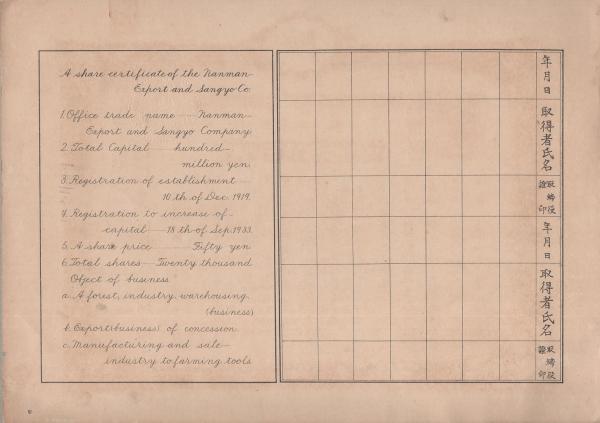 A share certificate of the Nanman
Export and Sangyo Co.
1. Office trade name Nanman
Export and Sangyo Company
2. Total Capital hundred
million yen.
3. Registration of establishment
10 th of Dec. 1919.
4. Registration to increase of
capital 18 th of Sep. 1933.
5. A share price Fifty yen
6. Total shares Twenty thousand
Object of business
a. A forest, industry, warehousing.
(business)
b. Export (business) of concession
c. Manufacturing and sale
industry to farming tools
年月日
取得者氏名
取締役
證印
年月日
取得者氏名
取締役
證印